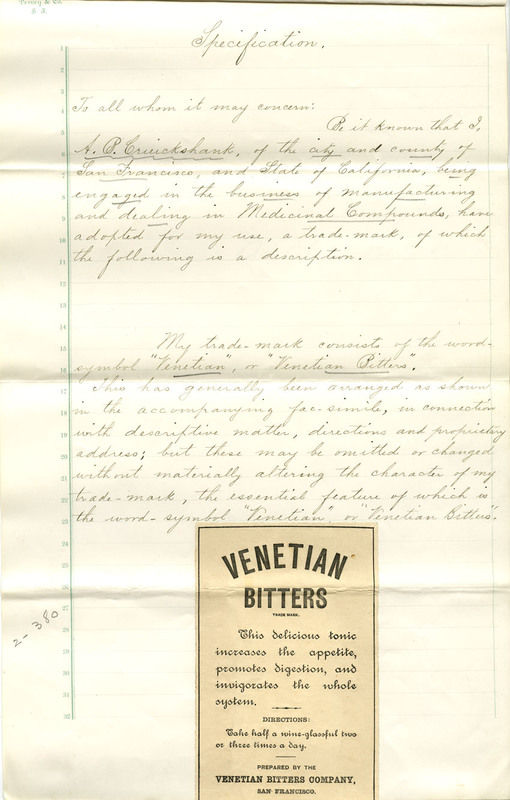 Specification.
To all whom it may concern:
Be it known that I,
A. P. Cruickshank, of the city and county of
San Francisco, and State of California, being
engaged in the business of manufacturing
and dealing in Medicinal Compounds, have
adopted for my use, a trade-mark, of which
the following is a description.
My trade-mark consists of the word-
symbol "Venetian", or "Venetian Bitters".
This has generally been arranged as shown
in the accompanying fac-simile, in connection
with descriptive matter, directions and proprietary
address; but these may be omitted or changed
without materially altering the character of my
trade-mark, the essential feature of which is
the word-symbol "Venetian", or "Venetian Bitters".
2-380
VENETIAN
BITTERS
TRADE MARK.
This delicious tonic
increases the appetite,
promotes digestion, and
invigorates the whole
system.
DIRECTIONS:
Take half a wine-glassful two
or three times a day.
PREPARED BY THE
VENETIAN BITTERS COMPANY,
SAN FRANCISCO.